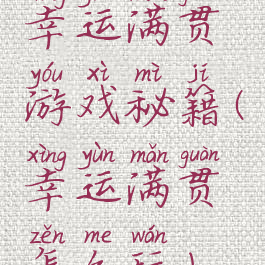 幸运满贯
yóu xì mì jí
游戏秘籍(
xìng yùn mǎn guàn
幸运满贯
zěn me wán
怎么玩)